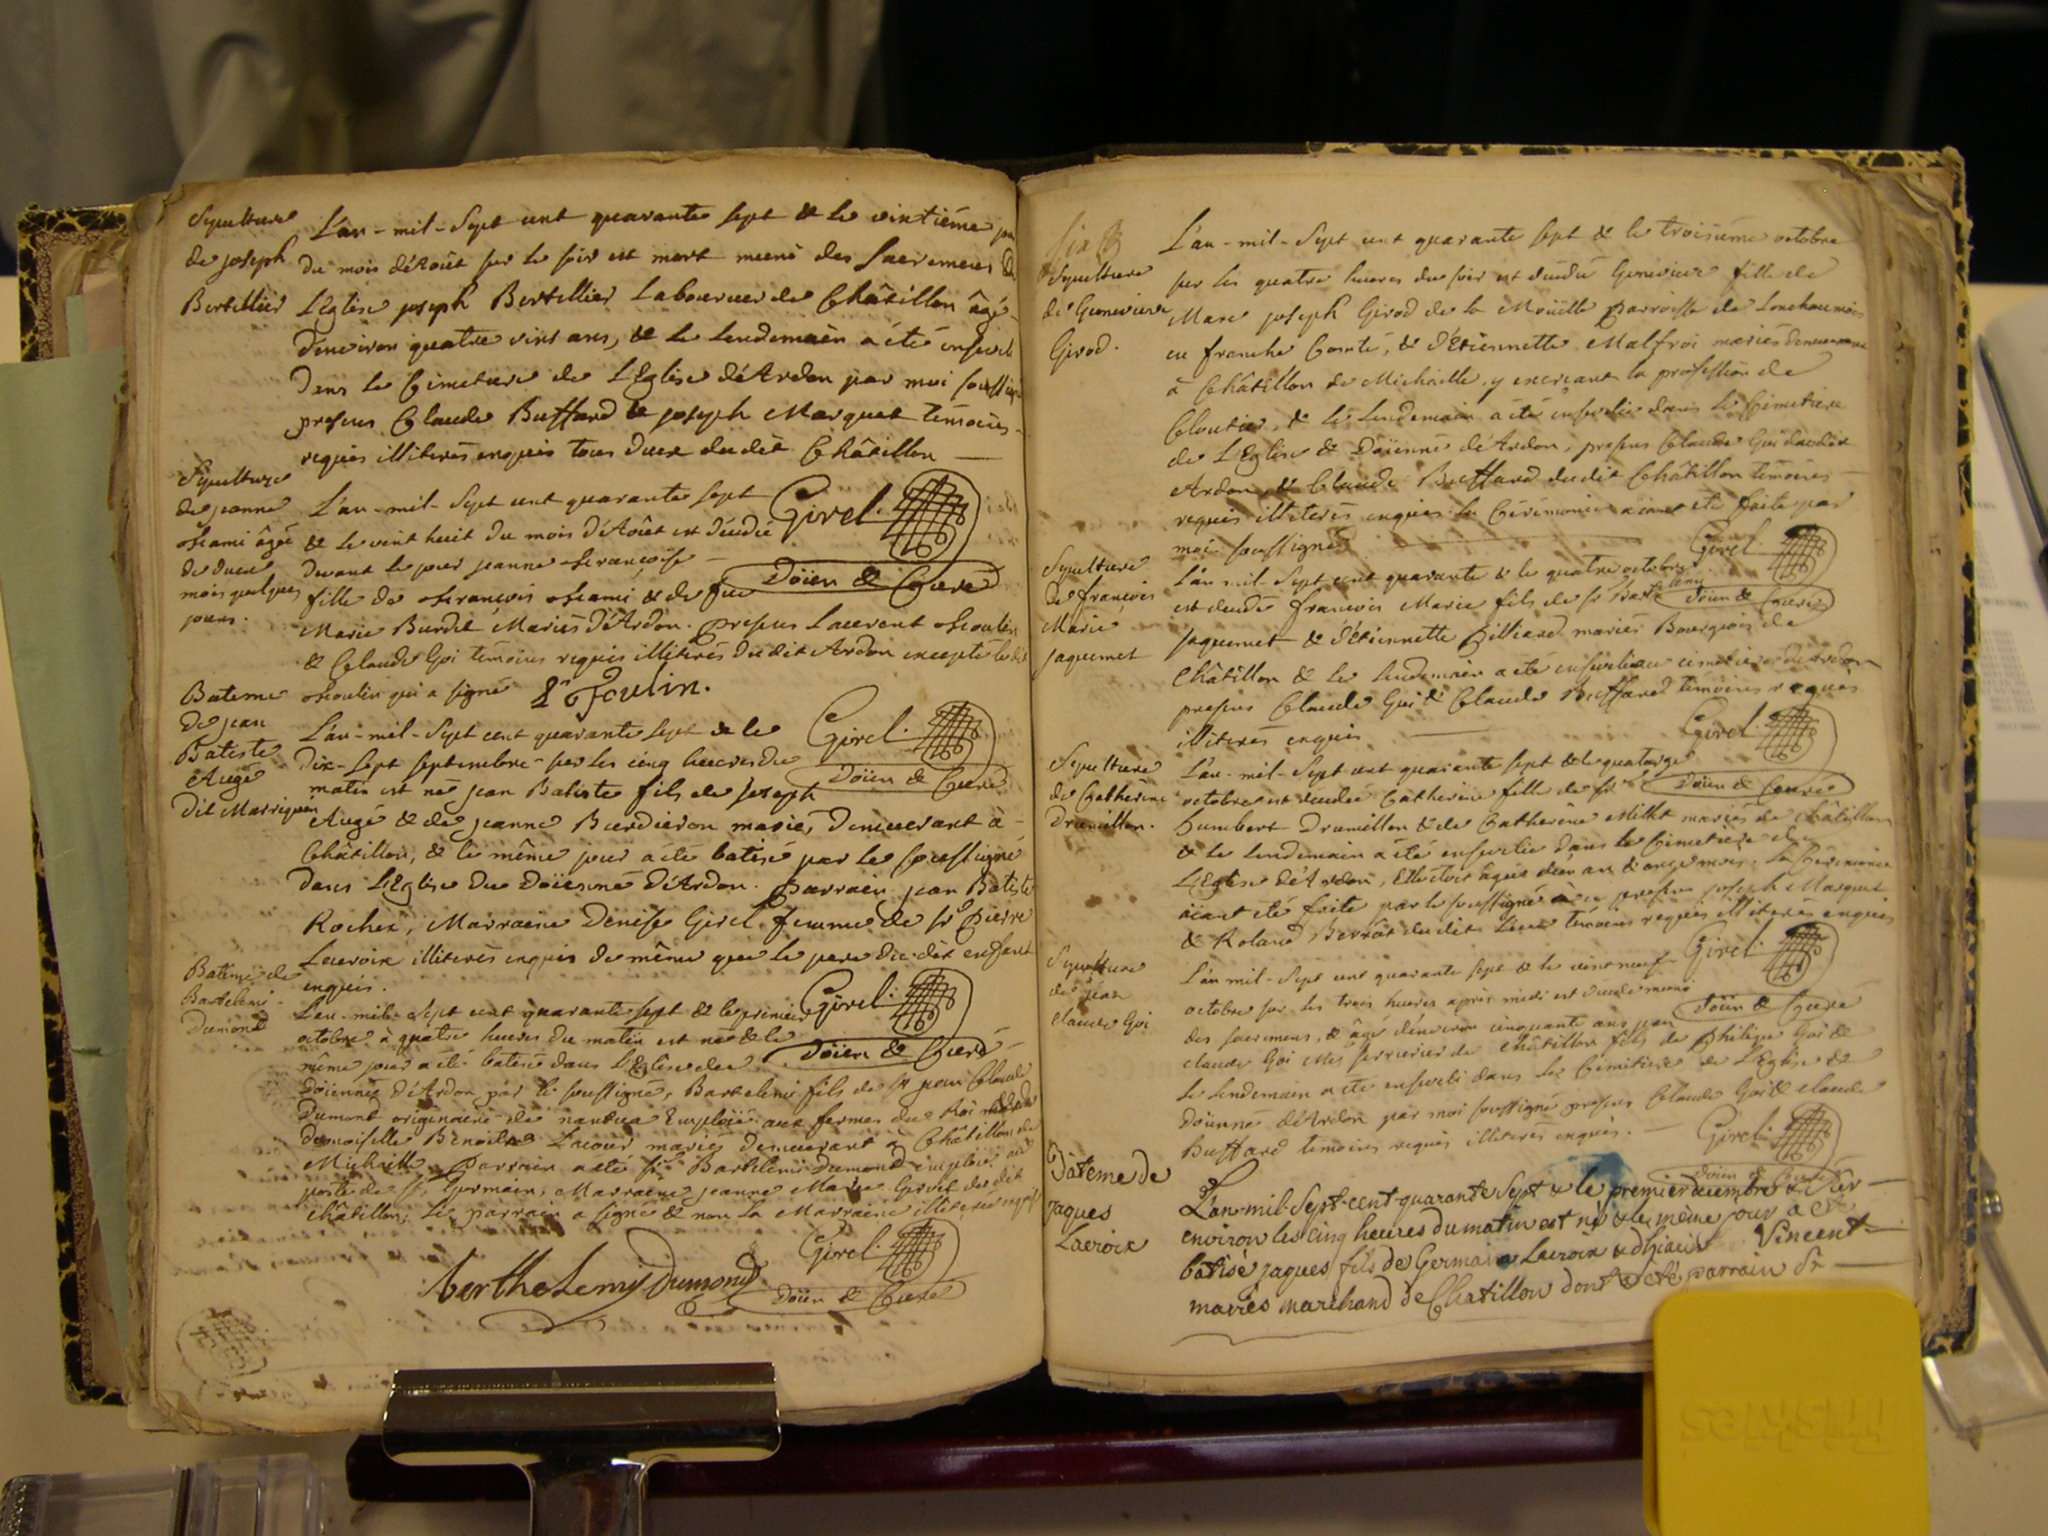 Sepulture
de joseph
Bertellier
L'an - mil - Sept cent quarante sept & le vintiéme jour
du mois d'Août sur le soir est mort muni des Sacremens de
L'Eglise joseph Bertellier Laboureur de Châtillon âgé
d'environ quatre vins ans, & le lendemain a été enseveli
dans le Cimetiere de L'Eglise d'Ardon par moi soussigné
presens Claude Buffard & joseph Marquet temoins
requis illiterés enquis tous deux dudit Châtillon
Girel.
Doïen & Curé
Sepulture
de jeanne
âgée
de deux
mois quelques
jours.
L'an - mil - Sept cent quarante sept
& le vint huit du mois d'Août est décédée
devant le jour jeanne françoise
fille de françois & de feu
Marie Burdet Mariés d'Ardon. presens Laurent foulin
& Claude Goi temoins requis illiterés dudit Ardon excepté ledit
foulin qui a signé L foulin.
Girel.
Doïen & Curé
Bateme
de jean
Batiste
Augé
dit Marriquin
L'an - mil - Sept cent quarante sept & le
dix-sept septembre sur les cinq heures du
matin est né jean Batiste fils de joseph
Augé & de jeanne Burdieron mariés demeurant à
Châtillon, & le même jour a été batisé par le soussigné
dans L'Eglise du Doïenné d'Ardon. Parrain jean Batiste
Rochex, Marraine Denise Girel femme de sr Pierre
Lacroix illiterés enquis de même que le pere dudit enfant
enquis.
Girel.
Doïen & Curé
Bateme de
Bartelemi
Dumond
L'an - mil - Sept cent quarante sept & le premier
octobre à quatre heures du matin est né & le
même jour a été batisé dans L'Eglise du
Doïenné d'Ardon par le soussigné, Bartelemi fils de sr jean Claude
Dumont originaire de nantua Emploïé aux fermes du Roi
demoiselle Benoite Lacour mariés demeurant à Châtillon de
Michaille. Parrain a été sr Bartelemi Dumond emploié au
poste de St Germain, Marraine jeanne Marie Girel dudit
Châtillon, le parrain a signé & non la Marraine illiterée enquise
Girel.
Doïen & Curé
berthelemy Dumond
Sepulture
de Genevieve
Girod.
L'an - mil - Sept cent quarante sept & le troisiéme octobre
sur les quatre heures du soir est decedée Genevieve fille de
Marc joseph Girod de la Moüille Parroisse de Lonchaumois
en franche Comté, & d'Etiennette Malfroi mariés demeurans
à Châtillon de Michaille, y exerçant la profession de
Cloutier, & le lendemain a été ensevelie dans le Cimetiere
de L'Eglise & Doïenné d'Ardon, presens Claude Goi dudit
Ardon & Claude Buffard dudit Châtillon temoins
requis illiterés enquis. la Cérémonie aïant été faite par
moi soussigné
Girel.
Doïen & Curé
Sepulture
de françois
Marie
jaquemet
L'an mil - Sept cent quarante & le quatre octobre
est decedé françois Marie fils de sr Bartelemi
jaquemet & d'Etiennette Billiard mariés Bourgeois de
Châtillon & le lendemain a été enseveli au cimetiere d'Ardon
presens Claude Goi & Claude Buffard temoins requis
illiterés enquis
Girel.
Doïen & Curé
Sepulture
de Catherine
Drumillon.
L'an - mil - Sept cent quarante sept & le quatorze
octobre est decedée Catherine fille de sr
humbert Drumillon & de Catherine Millet mariés de Châtillon
& le lendemain a été ensevelie dans le Cimetiere de
L'Eglise d'Ardon, Elle étoit âgée d'un an & onze mois. la Cérémonie
aïant été faite par le soussigné à ce presens joseph Marquet
& Roland Berrôt dudit Lieu temoins requis illiterés enquis
Girel.
Doïen & Curé
Sepulture
de jean
claude Goi
L'an mil - Sept cent quarante sept & le vint neuf
octobre sur les trois heures après midi est decedé muni
des sacremens, & âgé d'environ cinquante ans jean
claude Goi Me serrurier de Châtillon fils de Philipe Goi &
le lendemain a été enseveli dans le Cimetiere de L'Eglise &
Doïenné d'Ardon par moi soussigné presens Claude Goi & claude
Buffard temoins requis illiterés enquis.
Girel.
Doïen & Curé
Bateme de
jaques
Lacroix
L'an-mil-Sept-cent-quarante Sept & le premier decembre & sur
environ les cinq heures du matin est né & le même jour a été
batisé jaques fils de Germain Lacroix & Vincent
mariés marchand de Chatillon dont a été parrain Sr